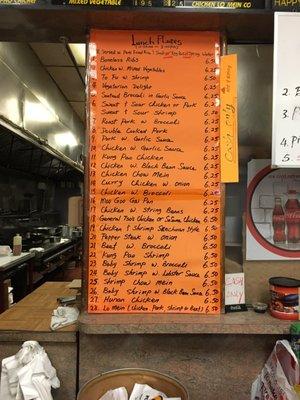 MIXED VEGETABLE 195 CHICKEN LO MEIN CO
Lunch Plates
Served w. Pork Fried Rice
1 Boneless Ribs 6.50
2 Chicken w. Mixed Vegetables 6.50
3 To Fu w Shrimp 6.50
4 Vegetarian Delight 6.50
5 Seafood Broccoli in Garlic Sauce 6.50
6 Sweet & Sour Chicken or Pork 6.50
Sweet & Sour Shrimp 6.50
7 Roast Pork w. Broccoli 6.50
8 Double Cooked Pork 6.50
9 Pork w. Garlic Sauce 6.50
10 Chicken w. Garlic Sauce 6.50
11 Kung Pao Chicken 6.50
12 Chicken w. Black Bean Sauce 6.50
13 Chicken Chow Mein 6.50
14 Curry Chicken w. onion 6.50
15 Chicken w. Broccoli 6.50
16 Moo Goo Gai Pan 6.50
17 Chicken w String Beans 6.50
18 General Tso's Chicken or Sesame Chicken 6.50
19 Chicken & Shrimp Szechuan Style 6.50
20 Pepper Steak w. Onion 6.50
21 Beef w Broccoli 6.50
22 Kung Pao Shrimp 6.50
23 Baby Shrimp w Broccoli 6.50
24 Baby Shrimp w Lobster Sauce 6.50
25 Shrimp Chow mein 6.50
26 Baby Shrimp w Black Bean Sauce 6.50
27 Hunan Chicken 6.50
28 Lo Mein (Chicken, Pork, Shrimp or Beef) 6.50
Cash only
CASH
ONLY
2.
3.
4.
5.